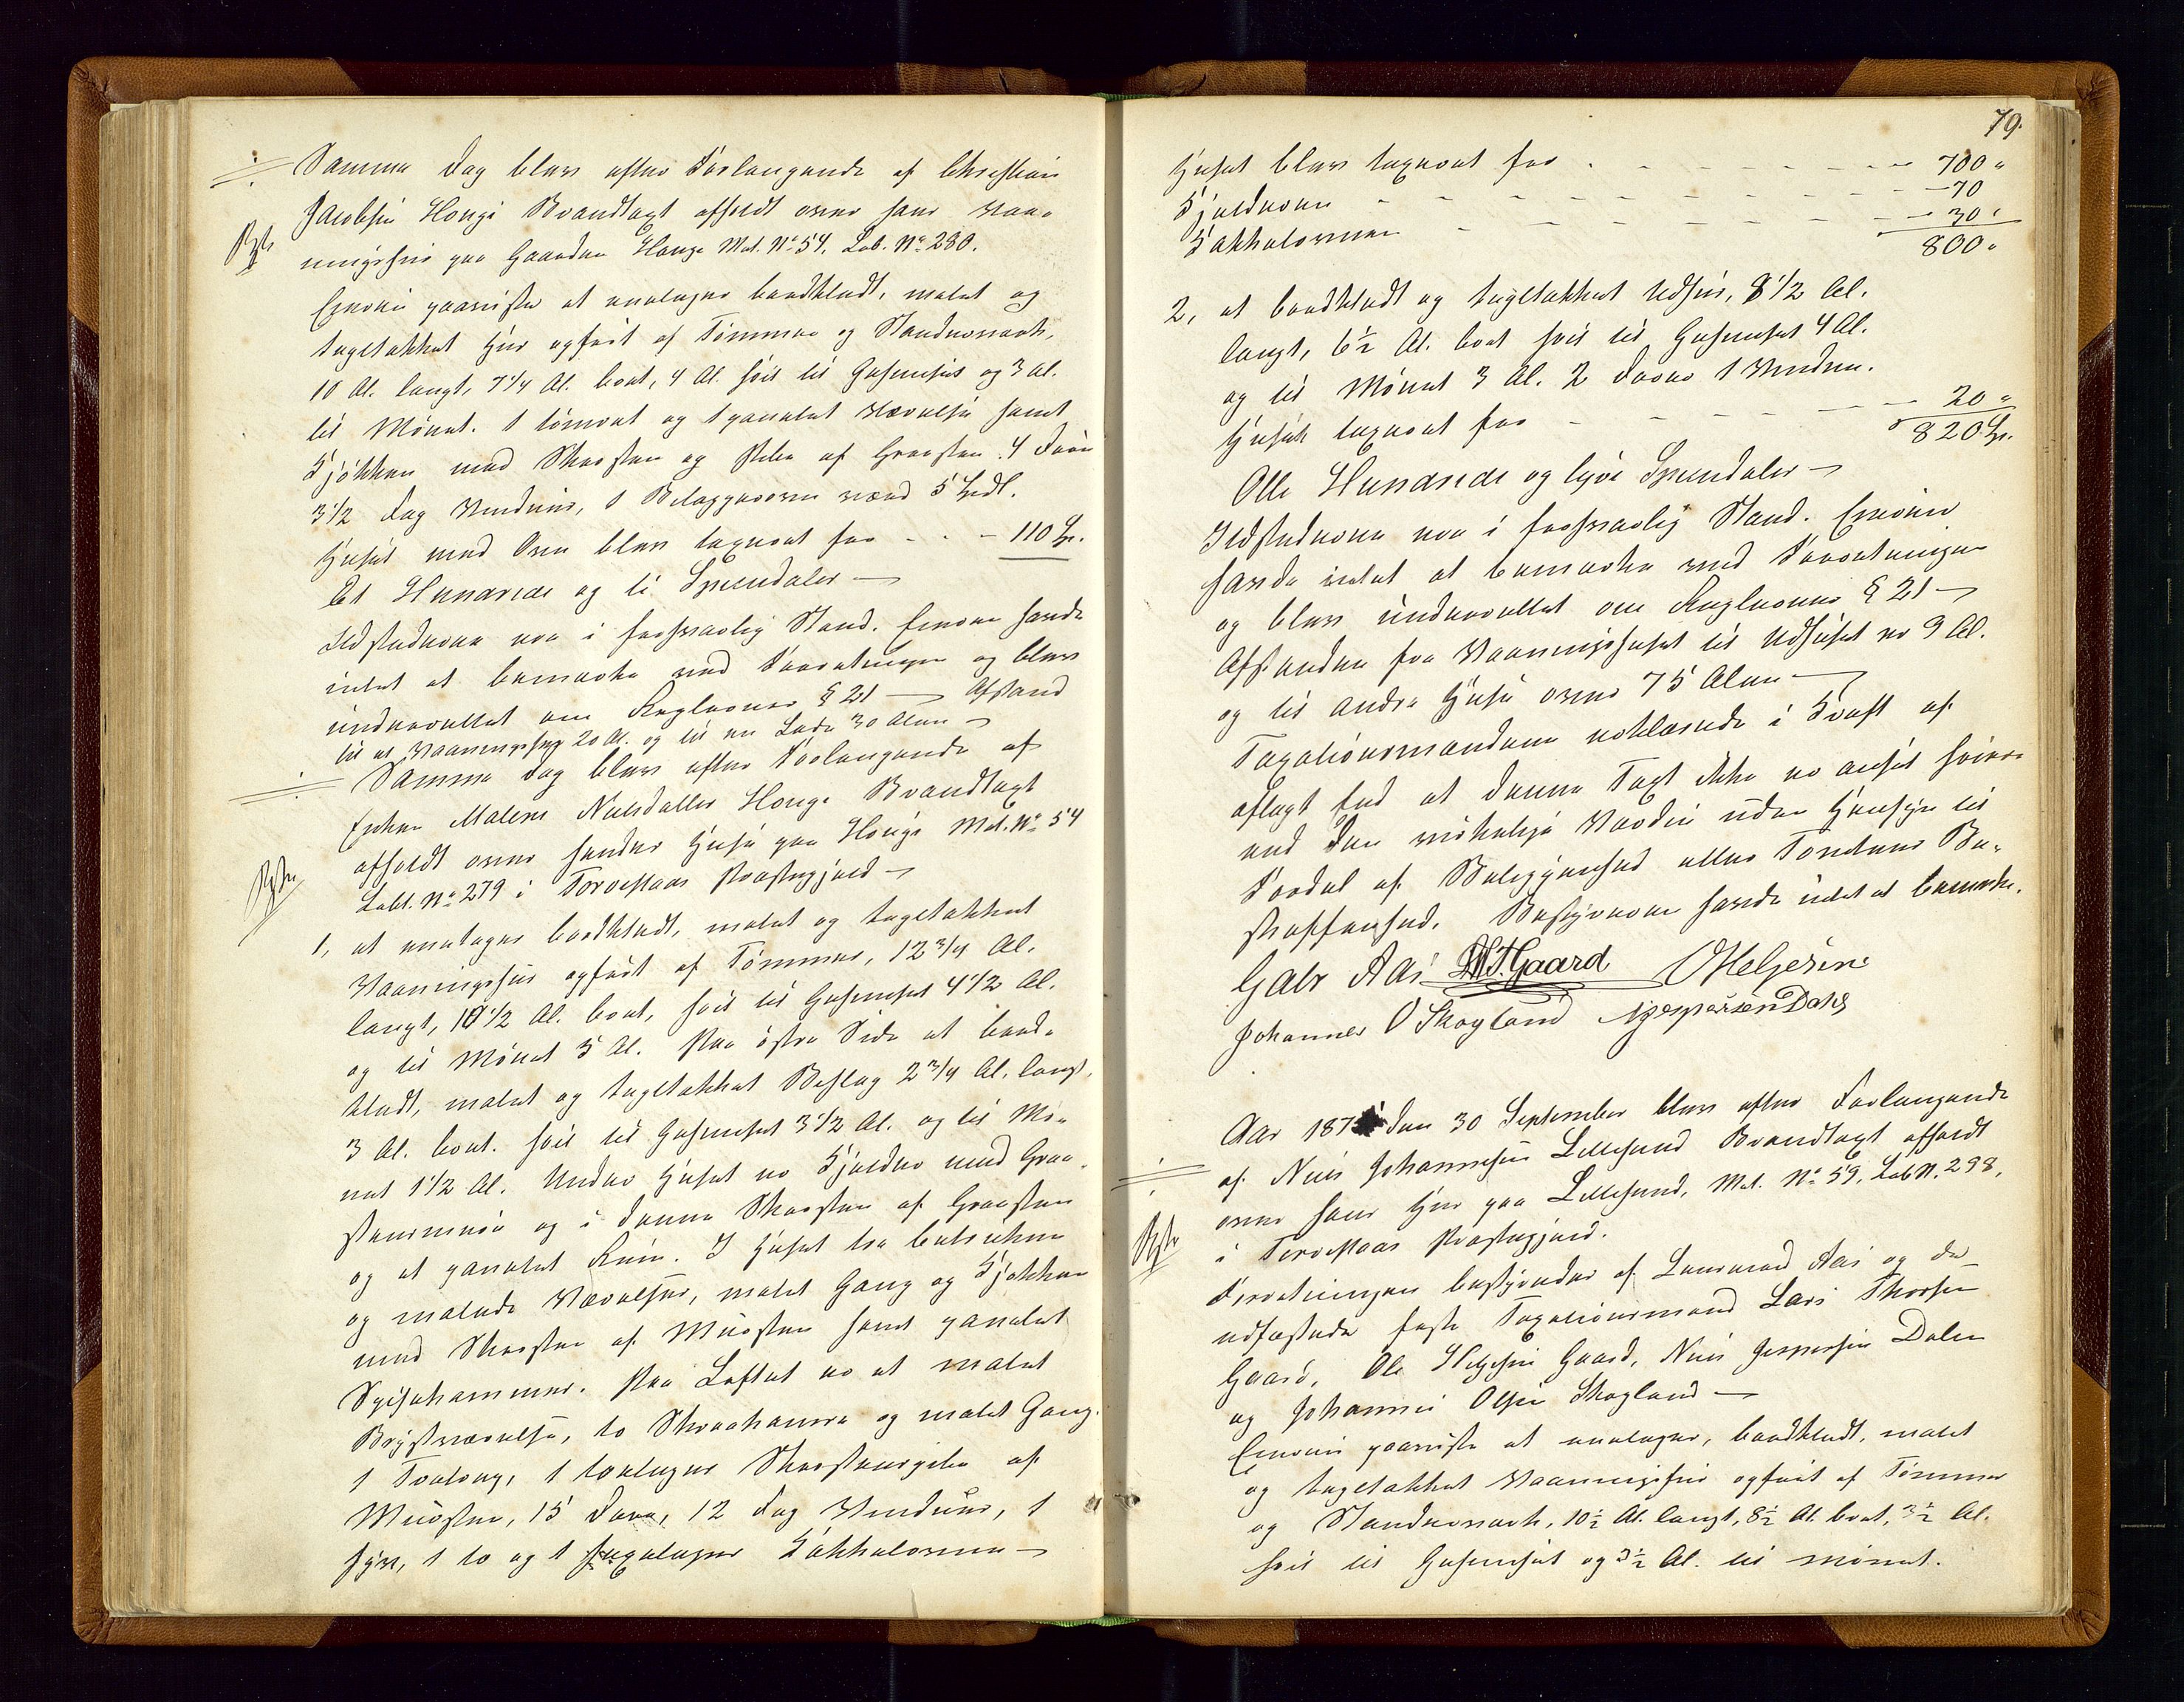 Samme Dag blev efter Forlangende af Christian
Jacobsen Hauge Brandtaxt afholdt over hans Vaa-
ningshus paa Gaarden Hauge Mat. No 54. Løb. No 280.
Eieren paaviste et enetages bordklædt, malet og
tagstækket Huus opført af Tømmer og Standerværk,
10 Al. langt, 7 1/4 Al. bredt, 4 Al. høit til Gesimsen og 3 Al.
til Mønet. 1 tømret og 1 panelet Værelse samt
Kjøkken med Skorsten og Pibe af Graasten. 4 Døre
3 1/2 Fag Vinduer, 1 Bilæggerovn værd 5 Spdl.
Huset med Ovn blev taxeret for - - - 110 Sp.
Et Hundrede og ti Speciedaler —
Ildstederne var i forsvarlig Stand. Eieren havde
intet at bemærke ved Forretningen og blev
underrettet om Reglernes § 21 — Afstand
til et Vaaningshus 20 Al. og til en Lade 30 Alen —
Samme Dag blev efter Forlangende af
Enken Malene Nielsdatter Hauge Brandtaxt
afholdt over hendes Huse paa Hauge Mat. No 54
Løb. No 279 i Torvestads Præstegjeld —
1, et enetages bordklædt, malet og tagstækket
Vaaningshus opført af Tømmer, 12 3/4 Al.
langt, 10 1/2 Al. bredt, høit til Gesimset 4 1/2 Al.
og til Mønet 5 Al. Paa østre Side et bord-
klædt, malet og tagstækket Beslag 2 3/4 Al. langt,
3 Al. bredt. høit til Gesimset 3 1/2 Al. og til Mø-
net 1 1/2 Al. Under Huset er Kjelder med Graa-
stensmure og i denne Skorsten af Graasten
og et panelet Rum. I Huset tre betrukne
og malede Værelser, malet Gang og Kjøkken
med Skorsten af Mursten samt panelet
Spisekammer. Paa Loftet er et malet
Brystværelse, to Skraakamre og malet Gang.
1 1 toetages Skorstenspibe af
Mursten, 15 Døre, 12 Fag Vinduer, 1
1 to og 1 Kakkelovne —
79.
Huset blev taxeret for - - - - - 700 "
Kjelderen - - - - - 70
Kakkelovnene - - - - - 30 "
800 "
2, et bordklædt og tagstækket Udhus, 8 1/2 Al.
langt, 6 1/2 Al. bredt høit til Gesimset 4 Al.
og til Mønet 3 Al. 2 Døre 1 Vindue.
Huset taxeret for - - - - - 20 "
820 Sp.
Otte Hundrede og tyve Speciedaler —
Ildstederne var i forsvarlig Stand. Eieren
havde intet at bemærke ved Forretningen
og blev underrettet om Reglernes § 21 —
Afstanden fra Vaaningshuset til Udhuset er 9 Al.
og til andre Huse over 75 Alen —
Taxationsmændene erklærede i Kraft af
aflagt Eed at denne Taxt ikke er ansat høiere
end den virkelige Værdi uden Hensyn til
Fordel af Beliggenhed eller Tomtens Be-
skaffenhed. Bestyreren havde intet at bemærke.
Gabr Aas LT.Gaard OHelgesen
Johannes O Skogland NJespersen Dale
Aar 1875 den 30 September blev efter Forlangende
af Nils Johannesen Lillesund Brandtaxt afholdt
over hans Hus paa Lillesund, Mat. No 59. Løb N. 298,
i Torvestads Præstegjeld.
Forretningen bestyredes af Lensmand Aas og de
udfæstede faste Taxationsmænd Lars Thorsen
Gaard, Ole Helgesen Gaard, Nils Jespersen Dale
og Johannes Olsen Skogland —
Eieren paaviste et enetages, bordklædt, malet
og tagstækket Vaaningshus opført af Tømmer
og Standerværk, 10 1/2 Al. langt, 8 1/2 Al. bredt, 3 1/2 Al.
høit til Gesimset og 3 1/2 Al. til Mønet.